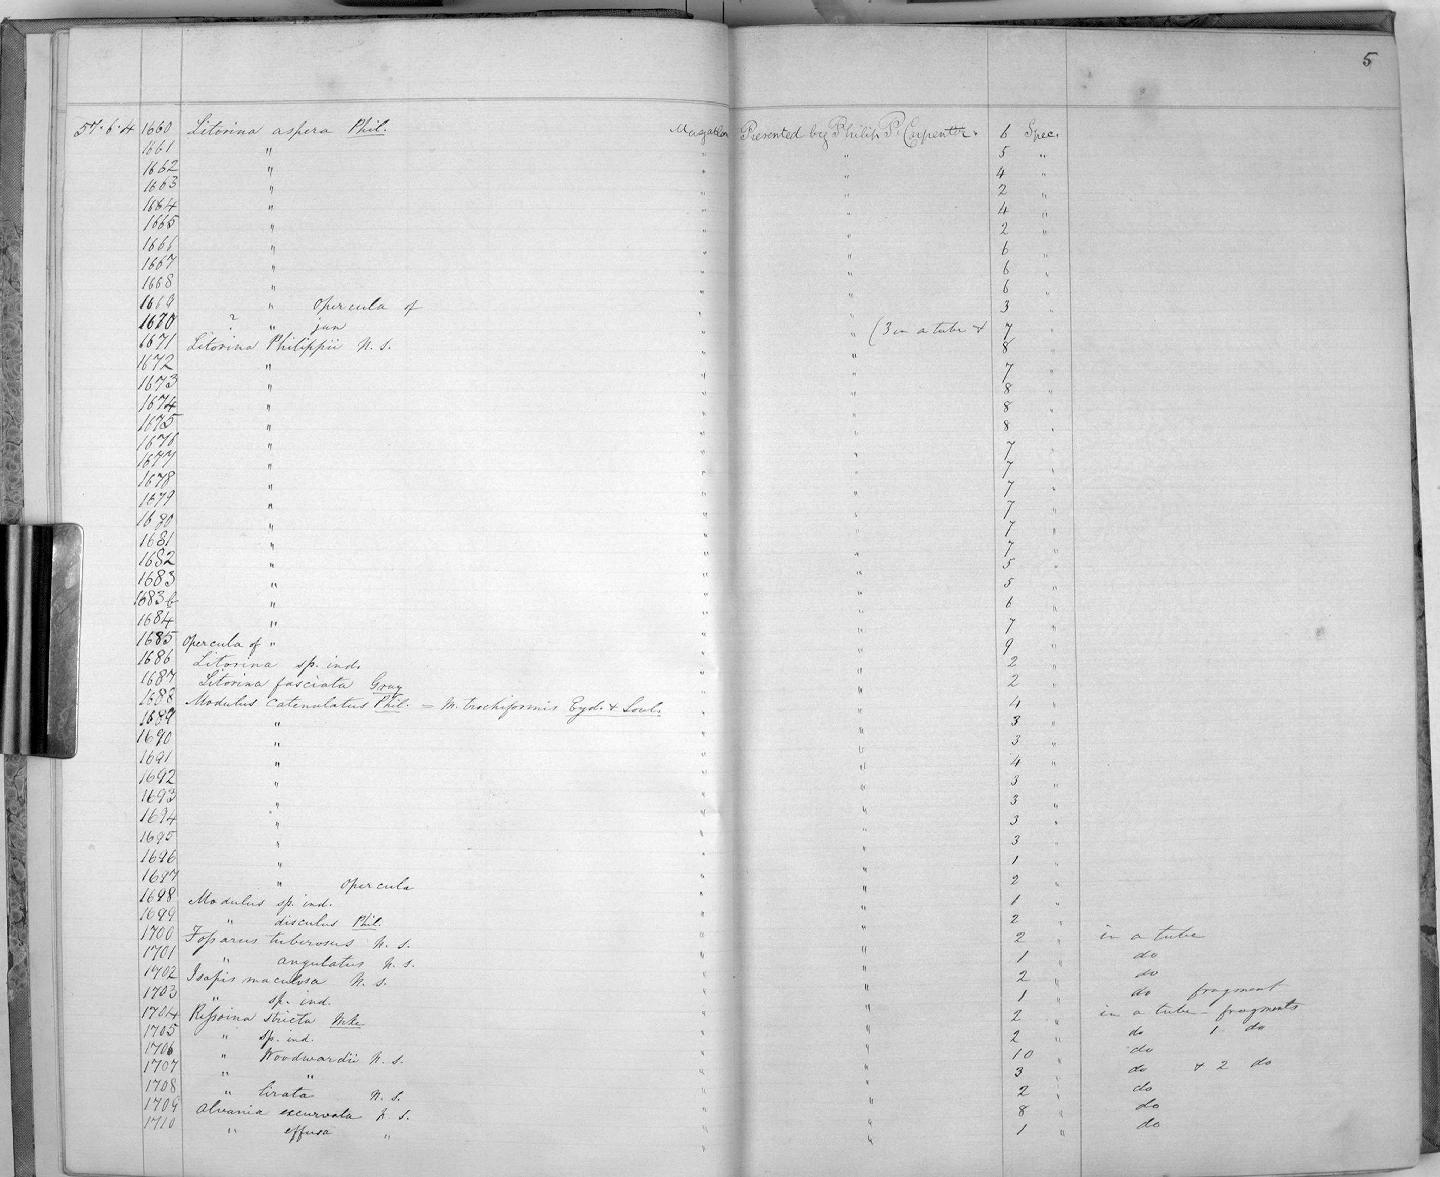 5
57.6.4 1660 Litorina aspera Phil. Mazatlan Presented by Philip P. Carpenter. 6 Spec.
1661 " " " 5 "
1662 " " " 4 "
1663 " " " 2 "
1664 " " " 4 "
1665 " " " 2 "
1666 " " " 6 "
1667 " " " 6 "
1668 " " " 6 "
1669 " Opercula of " " 3 "
1670 ? " jun " " (3 in a tube & 7 "
1671 Litorina Philippii N. s. " " 8 "
1672 " " " 7 "
1673 " " " 8 "
1674 " " " 8 "
1675 " " " 8 "
1676 " " " 7 "
1677 " " " 7 "
1678 " " " 7 "
1679 " " " 7 "
1680 " " " 7 "
1681 " " " 7 "
1682 " " " 5 "
1683 " " " 5 "
1683 b " " " 6 "
1684 " " " 7 "
1685 Opercula of " " " 9 "
1686 Litorina sp. ind. " " 2 "
1687 Litorina fasciata Gray " " 2 "
1688 Modulus catenulatus Phil. = M. trochiformis Eyd. & Soul. " " 4 "
1689 " " " 3 "
1690 " " " 3 "
1691 " " " 4 "
1692 " " " 3 "
1693 " " " 3 "
1694 " " " 3 "
1695 " " " 3 "
1696 " " " 1 "
1697 " Opercula " " 2 "
1698 Modulus sp. ind. " " 1 "
1699 " disculus Phil. " " 2 "
1700 Fossarus tuberosus N. s. " " 2 " in a tube
1701 " angulatus N. s. " " 1 " do
1702 Isapis maculosa N. s. " " 2 " do
1703 " sp. ind. " " 1 " do fragment
1704 Rissoina stricta Mke " " 2 " in a tube - fragments
1705 " sp. ind. " " 2 " do 1 do
1706 " Woodwardii N. s. " " 10 " do
1707 " " " " 3 " do & 2 do
1708 " lirata N. s. " " 2 " do
1709 Alvania excurvata N. s. " " 8 " do
1710 " effusa " " " 1 " do